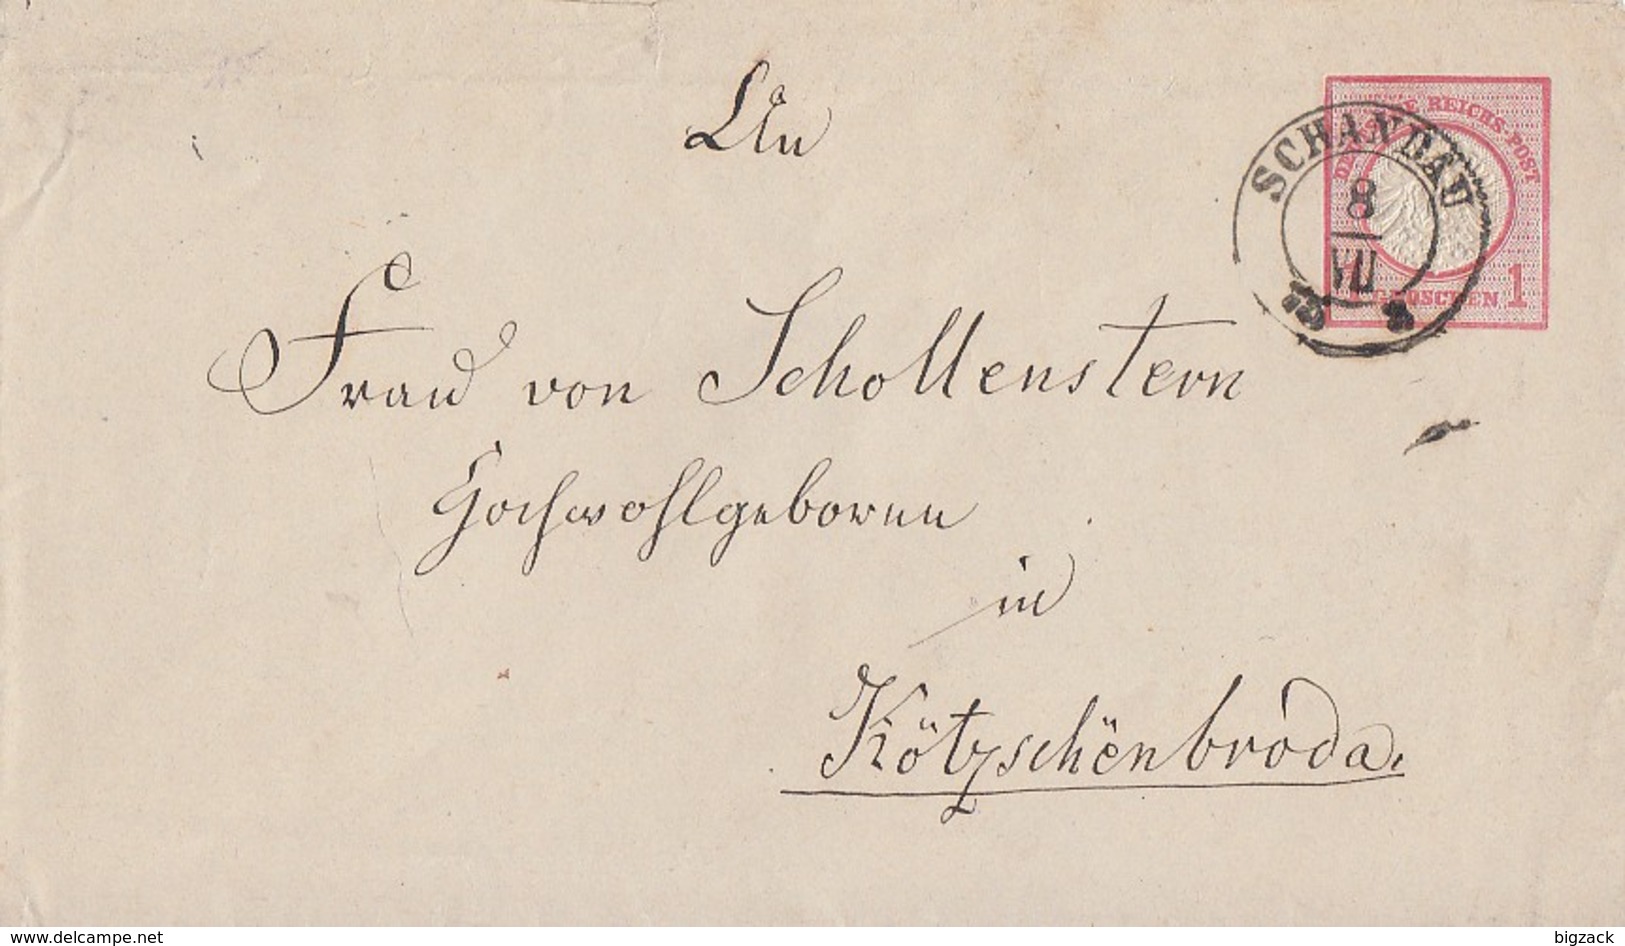 An
DEUTSCHE REICHS-POST
SCHANDAU
8
VII
1 GROSCHEN 1
Frau von Schollenstern
Hochwohlgeboren
in
Kötzschenbroda.
www.delcampe.net
bigzack